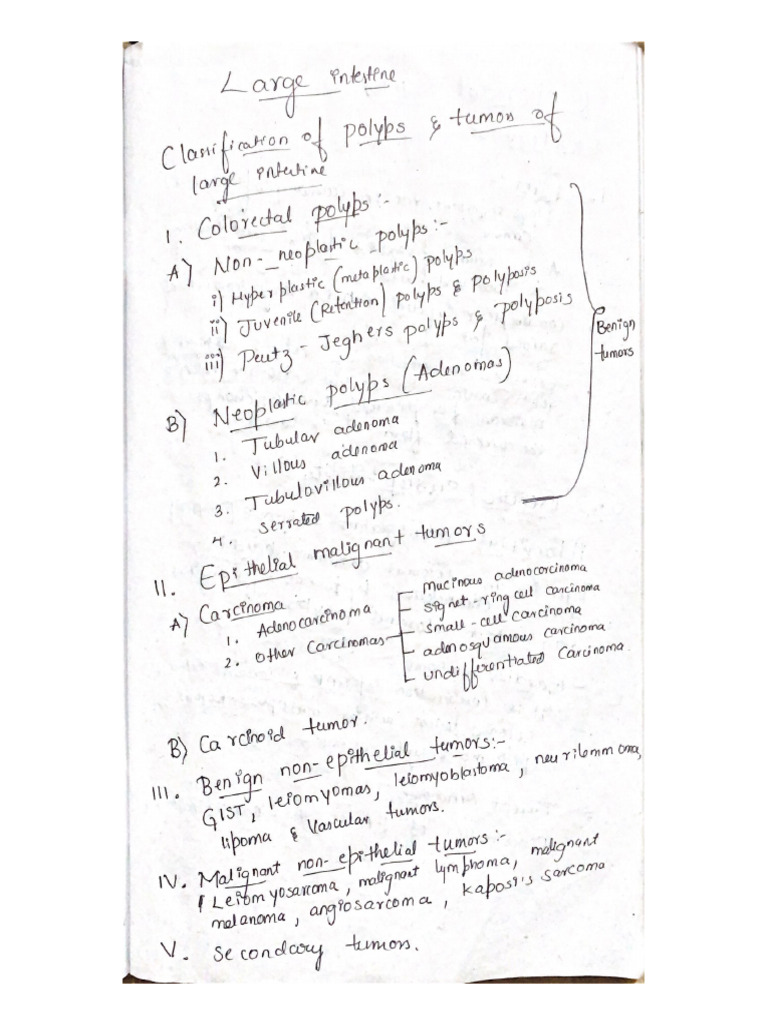 Large intestine
Classification of polyps & tumors of
large intestine
1. Colorectal polyps:-
A) Non-neoplastic polyps:-
i) Hyperplastic (metaplastic) polyps
ii) Juvenile (Retention) polyps & polyposis
iii) Peutz-Jeghers polyps & polyposis
Benign
tumors
B) Neoplastic polyps (Adenomas)
1. Tubular adenoma
2. Villous adenoma
3. Tubulovillous adenoma
4. serrated polyps.
II. Epithelial malignant tumors
A) Carcinoma
1. Adenocarcinoma
2. other Carcinomas
mucinous adenocarcinoma
signet-ring cell carcinoma
small-cell carcinoma
adenosquamous carcinoma
undifferentiated Carcinoma.
B) Carcinoid tumor.
III. Benign non-epithelial tumors:-
GIST, leiomyomas, leiomyoblastoma, neurilemmoma,
lipoma & vascular tumors.
IV. Malignant non-epithelial tumors:-
Leiomyosarcoma, malignant lymphoma, malignant
melanoma, angiosarcoma, kaposi's sarcoma
V. Secondary tumors.